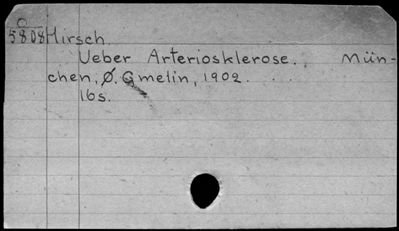 O
5808 Hirsch
Ueber Arteriosklerose., Mün-
chen, O. Gmelin, 1902. . .
16s.